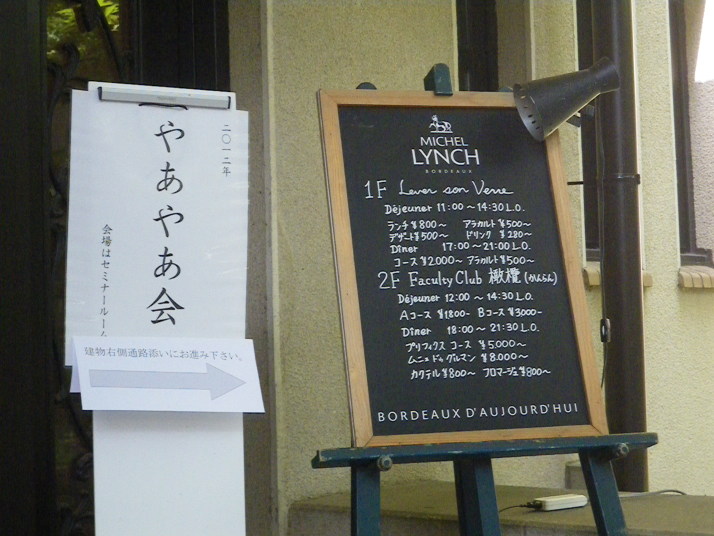 二〇一二年
やあやあ会
会場はセミナールーム
建物右側通路添いにお進み下さい。
MICHEL
LYNCH
BORDEAUX
1F Lever son Verre
Déjeuner 11:00～14:30 L.O.
ランチ ¥800～ アラカルト ¥500～
デザート ¥500～ ドリンク ¥280～
Dîner 17:00～21:00 L.O.
コース ¥2.000～ アラカルト ¥500～
2F Faculty Club 橄欖(かんらん)
Déjeuner 12:00～14:30 L.O.
Aコース ¥1800- Bコース ¥3000-
Dîner 18:00～21:30 L.O.
プリフィクス コース ¥5.000～
ムニュ ドゥ グルマン ¥8.000～
カクテル ¥800～ フロマージュ ¥800～
BORDEAUX D'AUJOURD'HUI